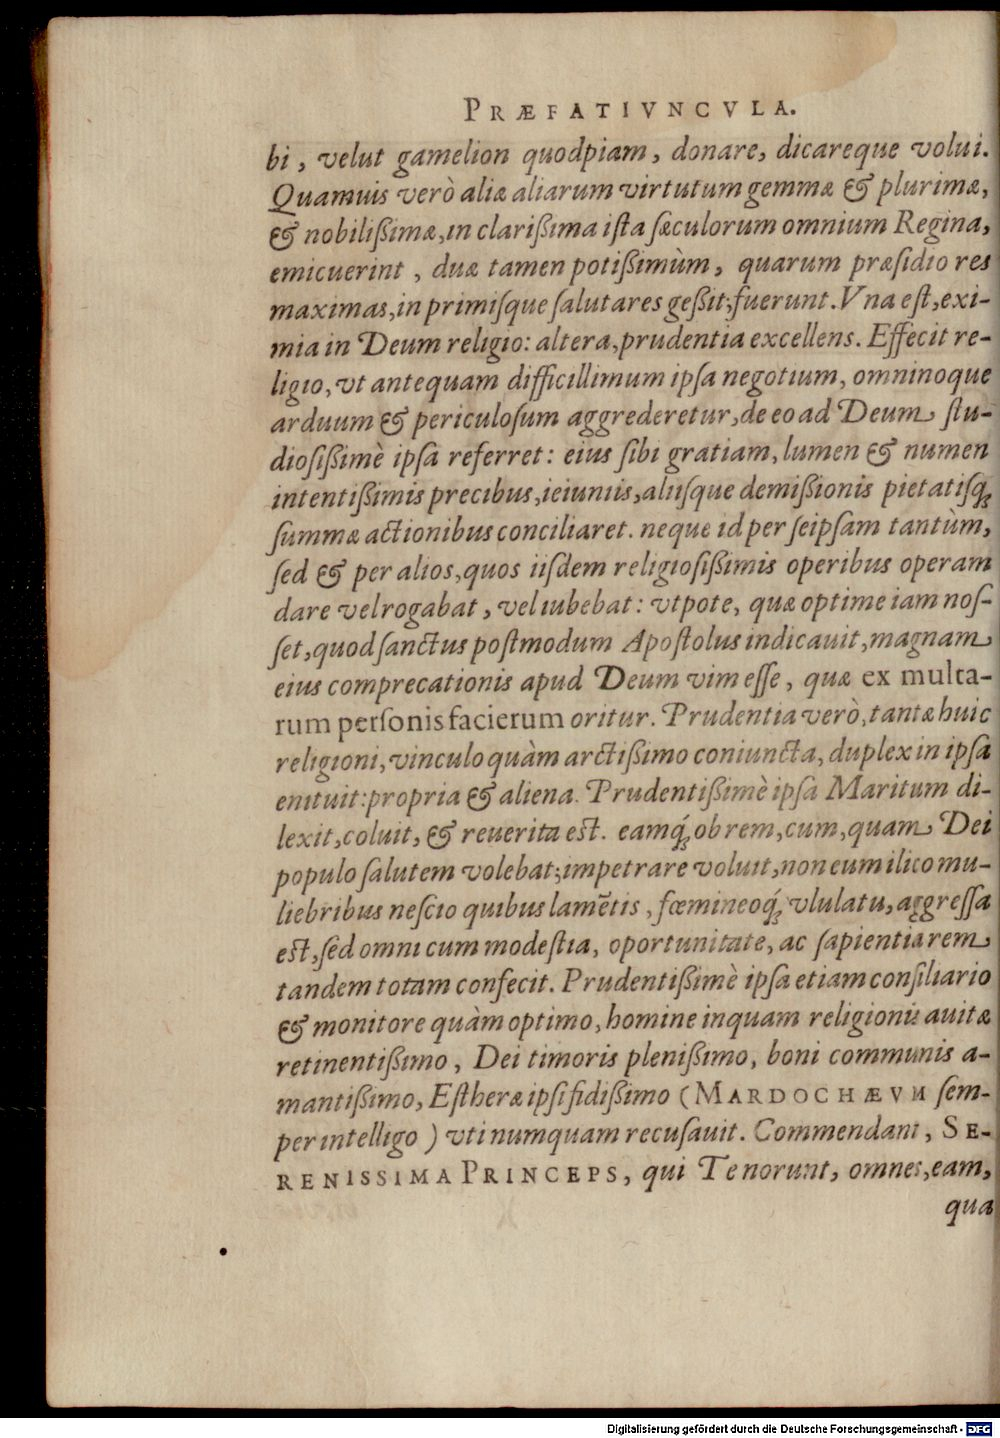 PRÆFATIVNCVLA.
bi, velut gamelion quodpiam, donare, dicareque volui.
Quamuis verò aliæ aliarum virtutum gemmæ & plurimæ,
& nobilißimæ, in clarißima iſta ſæculorum omnium Regina,
emicuerint, duæ tamen potißimùm, quarum præſidio res
maximas, in primiſque ſalutares geßit; fuerunt. Vna eſt, exi-
mia in Deum religio: altera, prudentia excellens. Effecit re-
ligio, vt antequam difficillimum ipſa negotium, omninoque
arduum & periculoſum aggrederetur, de eo ad Deum ſtu-
dioſißimè ipſa referret: eius ſibi gratiam, lumen & numen
intentißimis precibus, ieiuniis, aliiſque demißionis pietatiſq́;
ſummæ actionibus conciliaret. neque id per ſeipſam tantùm,
ſed & per alios, quos iiſdem religioſißimis operibus operam
dare vel rogabat, vel iubebat: vtpote, quæ optime iam noſ-
ſet, quod ſanctus poſtmodum Apoſtolus indicauit, magnam
eius comprecationis apud Deum vim eſſe, quæ ex multa-
rum perſonis facierum oritur. Prudentia verò, tantæ huic
religioni, vinculo quàm arctißimo coniuncta, duplex in ipſa
enituit: propria & aliena. Prudentißimè ipſa Maritum di-
lexit, coluit, & reuerita eſt. eamq́; ob rem, cum, quam Dei
populo ſalutem volebat; impetrare voluit, non eum ilico mu-
liebribus neſcio quibus lamẽtis, fœmineoq́; vlulatu, aggreſſa
eſt, ſed omni cum modeſtia, oportunitate, ac ſapientia rem
tandem totam confecit. Prudentißimè ipſa etiam conſiliario
& monitore quàm optimo, homine inquam religionis auitæ
retinentißimo, Dei timoris plenißimo, boni communis a-
mantißimo, Eſtheræ ipſi fidißimo (MARDOCHÆVM ſem-
per intelligo) vti numquam recuſauit. Commendant, SE-
RENISSIMA PRINCEPS, qui Te norunt, omnes, eam,
qua
Digitalisierung gefördert durch die Deutsche Forschungsgemeinschaft - DFG